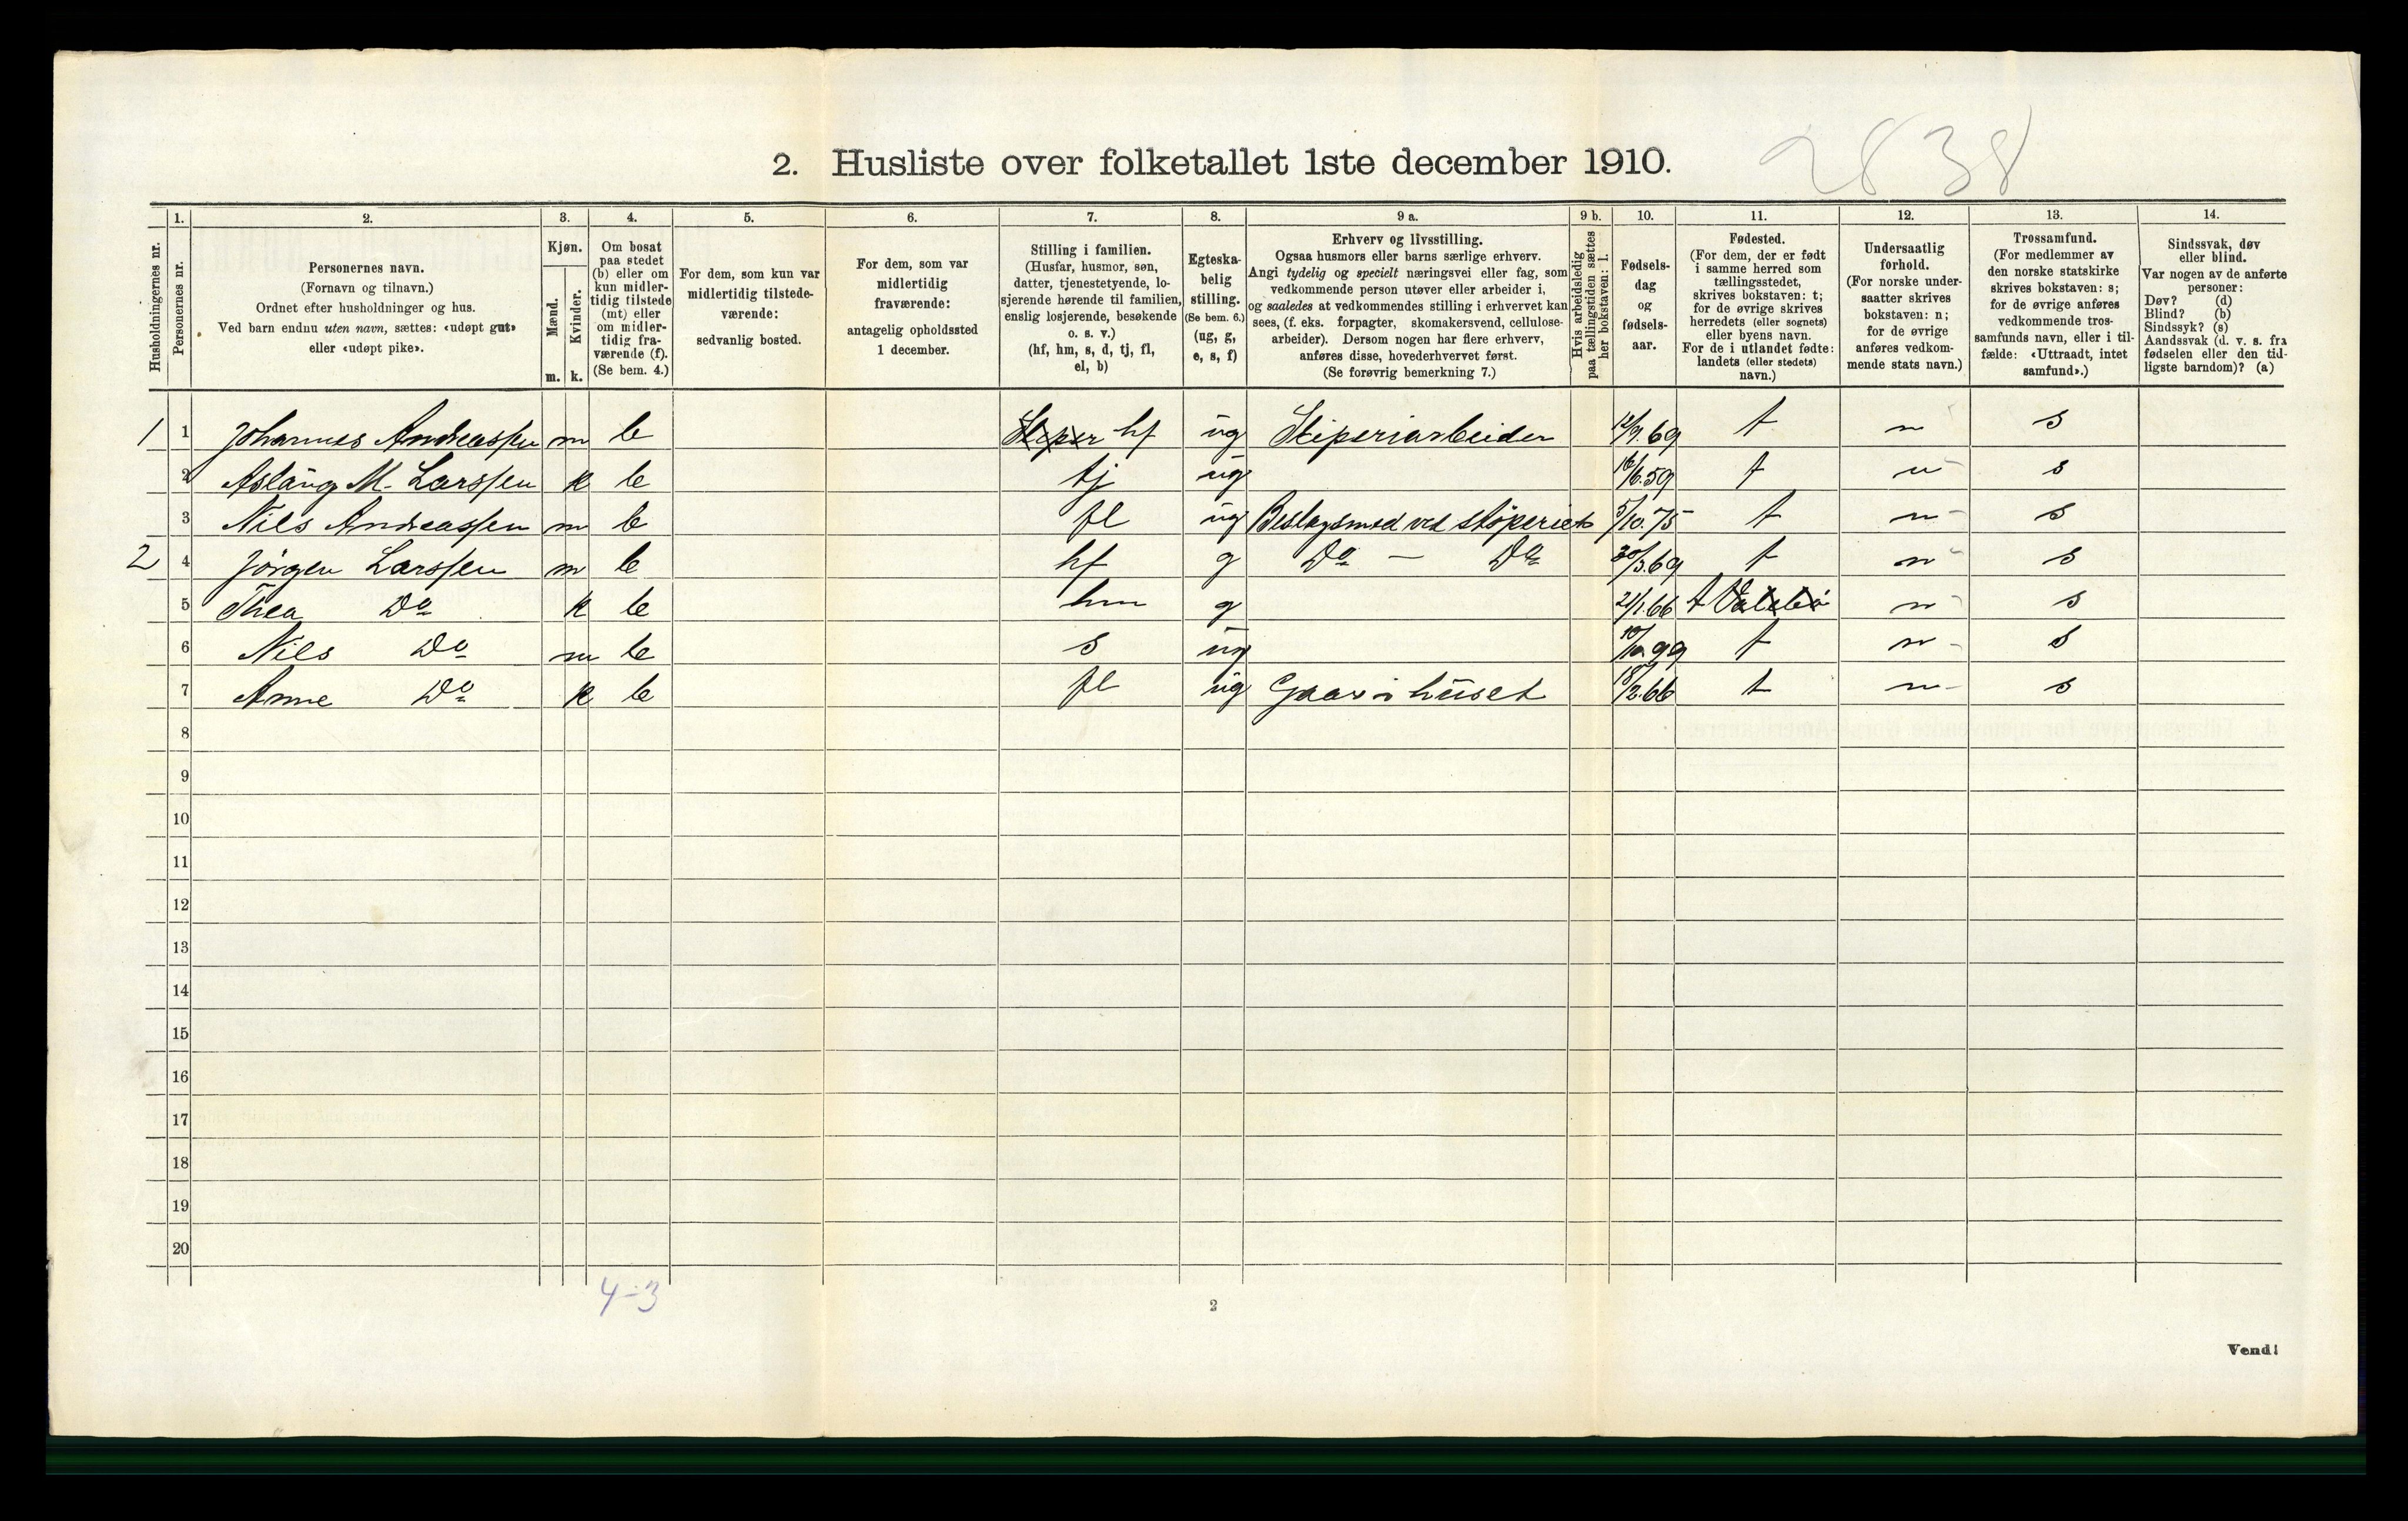 2838
2. Husliste over folketallet 1ste december 1910.
Husholdningernes nr.
1. Personernes nr.
2. Personernes navn. (Fornavn og tilnavn.) Ordnet efter husholdninger og hus. Ved barn endnu uten navn, sættes: «udøpt gut» eller «udøpt pike».
3. Kjøn. Mænd. m. Kvinder. k.
4. Om bosat paa stedet (b) eller om kun midlertidig tilstede (mt) eller om midlertidig fraværende (f). (Se bem. 4.)
5. For dem, som kun var midlertidig tilstedeværende: sedvanlig bosted.
6. For dem, som var midlertidig fraværende: antagelig opholdssted 1 december.
7. Stilling i familien. (Husfar, husmor, søn, datter, tjenestetyende, losjerende hørende til familien, enslig losjerende, besøkende o. s. v.) (hf, hm, s, d, tj, fl, el, b)
8. Egteskabelig stilling. (Se bem. 6.) (ug, g, e, s, f)
9 a. Erhverv og livsstilling. Ogsaa husmors eller barns særlige erhverv. Angi tydelig og specielt næringsvei eller fag, som vedkommende person utøver eller arbeider i, og saaledes at vedkommendes stilling i erhvervet kan sees, (f. eks. forpagter, skomakersvend, cellulosearbeider). Dersom nogen har flere erhverv, anføres disse, hovederhvervet først. (Se forøvrig bemerkning 7.)
9 b. Hvis arbeidsledig paa tællingstiden sættes her bokstaven: l.
10. Fødselsdag og fødselsaar.
11. Fødested. (For dem, der er født i samme herred som tællingsstedet, skrives bokstaven: t; for de øvrige skrives herredets (eller sognets) eller byens navn. For de i utlandet fødte: landets (eller stedets) navn.)
12. Undersaatlig forhold. (For norske undersaatter skrives bokstaven: n; for de øvrige anføres vedkommende stats navn.)
13. Trossamfund. (For medlemmer av den norske statskirke skrives bokstaven: s; for de øvrige anføres vedkommende trossamfunds navn, eller i tilfælde: «Uttraadt, intet samfund».)
14. Sindssvak, døv eller blind. Var nogen av de anførte personer: Døv? (d) Blind? (b) Sindssyk? (s) Aandssvak (d. v. s. fra fødselen eller den tidligste barndom)? (a)
1 1 Johannes Andreassen m b hf ug Støperiarbeider 12/9.69 t n s
2 Aslaug M. Larssen k b tj ug 16/6.59 t n s
3 Nils Andreassen m b fl ug Beslagsmed ved støperiet 5/10.75 t n s
2 4 Jörgen Larssen m b hf g Do - Do 30/3.69 t n s
5 Thea Do k b hm g 21/1.66 t n s
6 Nils Do m b s ug 10/10.99 t n s
7 Anne Do k b fl ug Gaar i huset 18/2.66 t n s
8
9
10
11
12
13
14
15
16
17
18
19
20
4-3
2
Vend!